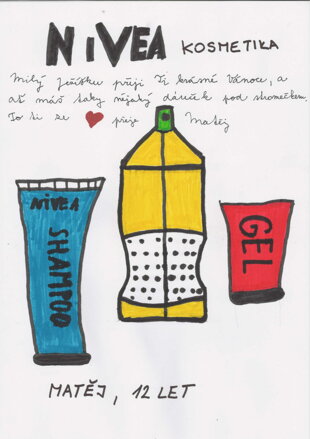 NiVEA KOSMETIKA
Milý Ježíšku přeji Ti krásné Vánoce, a
ať máš taky nějaký dárek pod stromečkem.
To ti ze přeje Matěj
NiVEA
SHAMPOO
GEL
MATĚJ, 12 LET